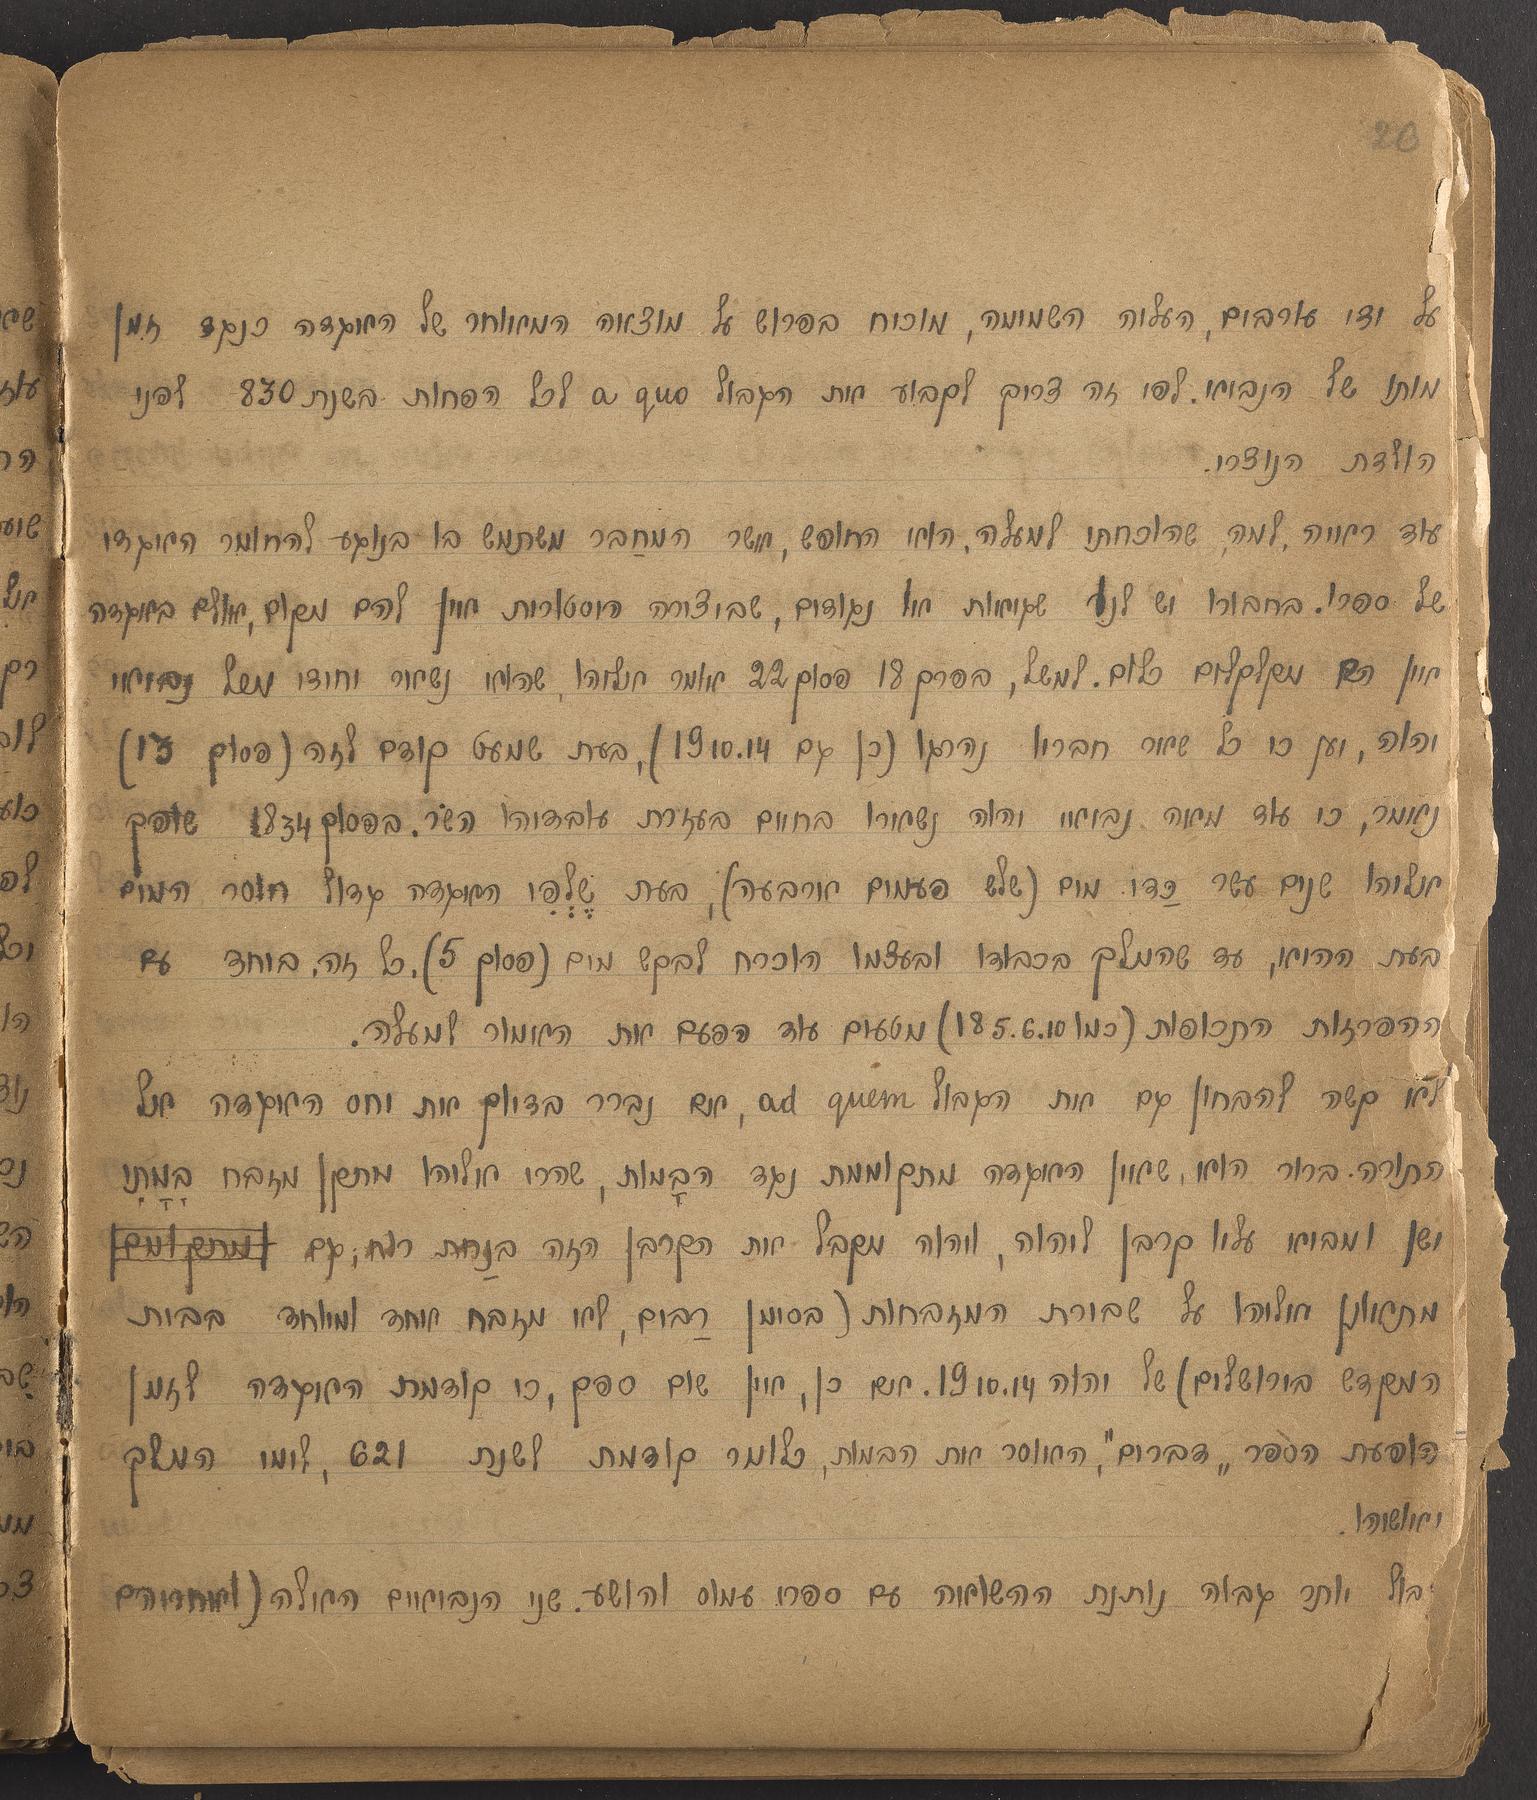 26
על ידי עורבים, העליה השמימה, מוכיח בפרוש על מוצאה המאוחר של האגדה כנגד זמן
מותו של הנביא. לפי זה צריך לקבוע את הגבול a quo לכל הפחות בשנת 830 לפני
הולדת הנוצרי.
עוד ראיה למה שהוכחתי למעלה, הוא החופש, אשר המחַבר משתמש בו בנוגע להחומר האגדי
של ספרו. בחבורו יש לנו שגיאות או נגודים, שביצירה היסטורית אין להם מקום, אולם באגדה
אין הם מקלקלים כלום. למשל, בפרק 18 פסוק 22 אומר אליהו, שהוא נשאר יחידי משל נביאי
יהוה, יען כי כל שאר חבריו נהרגו (כן גם 19 10.14), בעת שמעט קודם לזה (פסוק 13)
נאמר, כי עוד מאה נביאי יהוה נשארו בחיים בעזרת עובדיהו השׂר. בפסוק 18 34 שופך
אליהו שנים עשר כַּדי מים (שלש פעמים ארבעה), בעת שֶׁלְּפִי האגדה גדול חוסר המים
בעת ההיא, עד שהמלך בכבודו ובעצמו הוכרח לבקש מים (פסוק 5). כל זה, ביחד עם
ההפרזות התכופות (כמו 18 5.6.10) מטעים עוד הפעם את האמור למעלה.
לא קשה להבחין גם את הגבול ad quem, אם נברר בדיוק את יחס האגדה אל
התורה. ברור הוא, שאין האגדה מתקוממת נגד הבָּמות, שהרי אליהו מתקן מזבח בָּמָתִי
ישן ומביא עליו קרבן ליהוה, ויהוה מקבל את הקרבן הזה בנַחת רוח; גם ומתקומם
מתאונן אליהו על שבירת המזבחות (בסימן רַבים, לא מזבח אחד ומיוחד בבית
המקדש בירושלים) של יהוה 19 10.14. אם כן, אין שום ספק, כי קודמת האגדה לזמן
הופעת הספר „דברים", האוסר את הבמות, כלומר קודמת לשנת 621, לימי המלך
יאושיהו.
גבול יותר גבוה נותנת ההשואה עם ספרי עמוס והושע. שני הנביאים האלה (ואחריהם